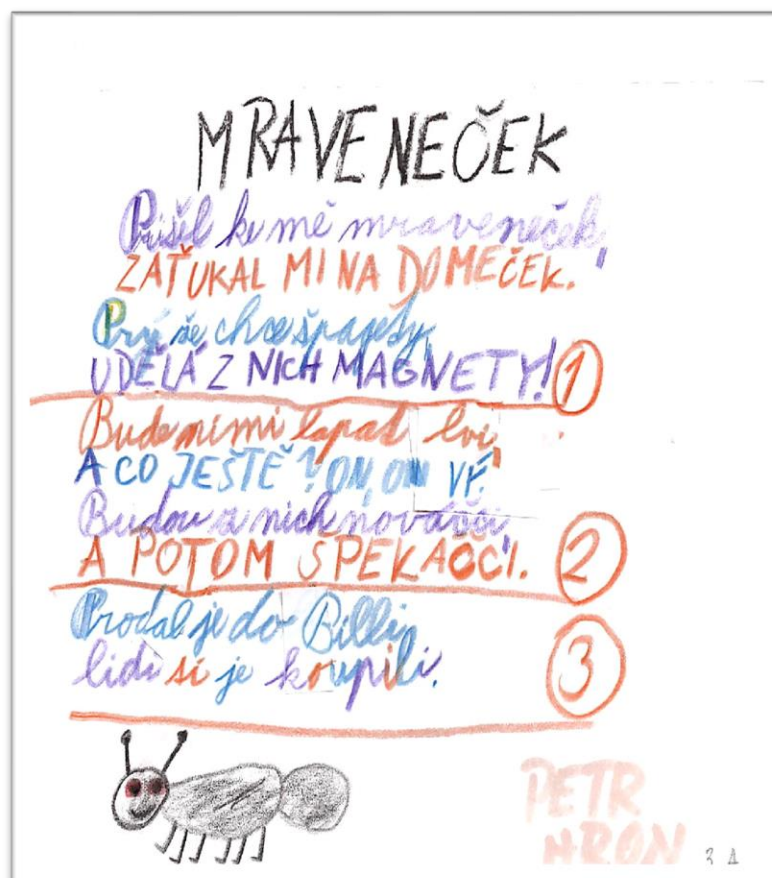 MRAVENEČEK
Přišel ke mě mraveneček,
ZAŤUKAL MI NA DOMEČEK.
Prý že chce špagety,
UDĚLÁ Z NICH MAGNETY! 1
Bude nimi lapat lvi,
A CO JEŠTĚ? ON, ON VÍ.
Budou z nich nováčci,
A POTOM ŠPEKÁČCI. 2
Prodal je do Billy,
lidi si je koupili. 3
PETR
HRON
3 A